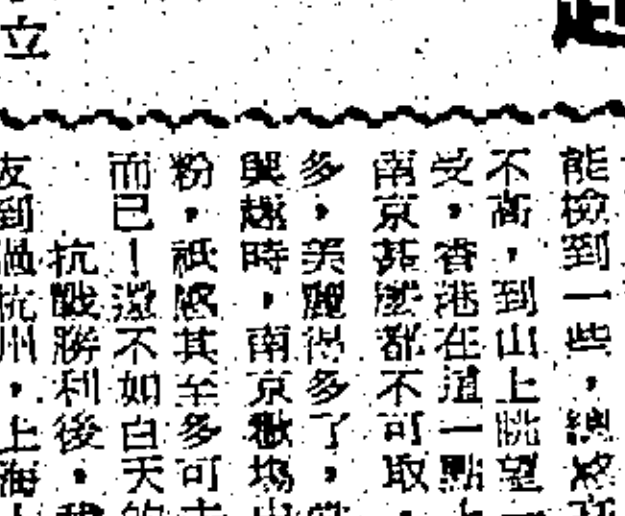 能檢到一些，總
不高，到山上眺望一
受，香港在這一點，上
南京甚麼都不可取，
多，美麗得多了，
興趣時，南京歌場出
粉，祇感其至多可
而已！還不如白天的
抗戰勝利後，我
友到過杭州，上海
立